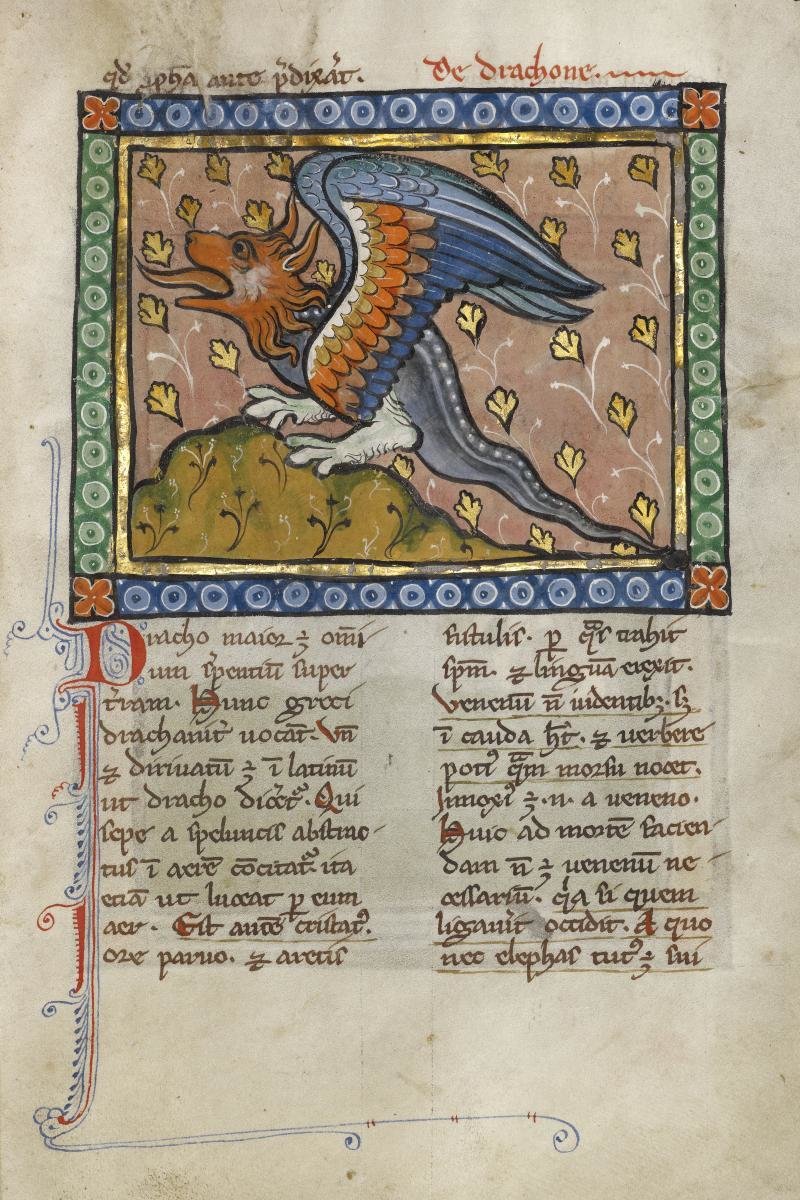 qđ ꝓph̄a ante p̄dixāt.
De drachone.
Dracho maior ē omī
um s̄pentiū super
t̄ram. Hunc greci
drachanit᷑ uocāt. Vn̄
⁊ dirivatū ē ī latinū
ut dracho dicet᷑. Qui
sepe a speluncis abstrac
tus ī aerē cōcitat᷑ ita
etiā ut luceat ꝑ eum
aer. Est autē cristatꝰ.
ore paruo. ⁊ artis
fistulis. ꝑ q̄s trahit
sp̄m. ⁊ linguā exerit.
Venenū n̄ ī dentibꝫ. sꝫ
ī cauda h̄t. ⁊ uerbere
potiꝰ q̄m morsu nocet.
Innoxiꝰ ē .n. a ueneno.
Huic ad mortē facien
dam n̄ ē uenenū ne
cessariū. q̄a si quem
ligau̾it occidit. A quo
nec elephas tutꝰ ē sui